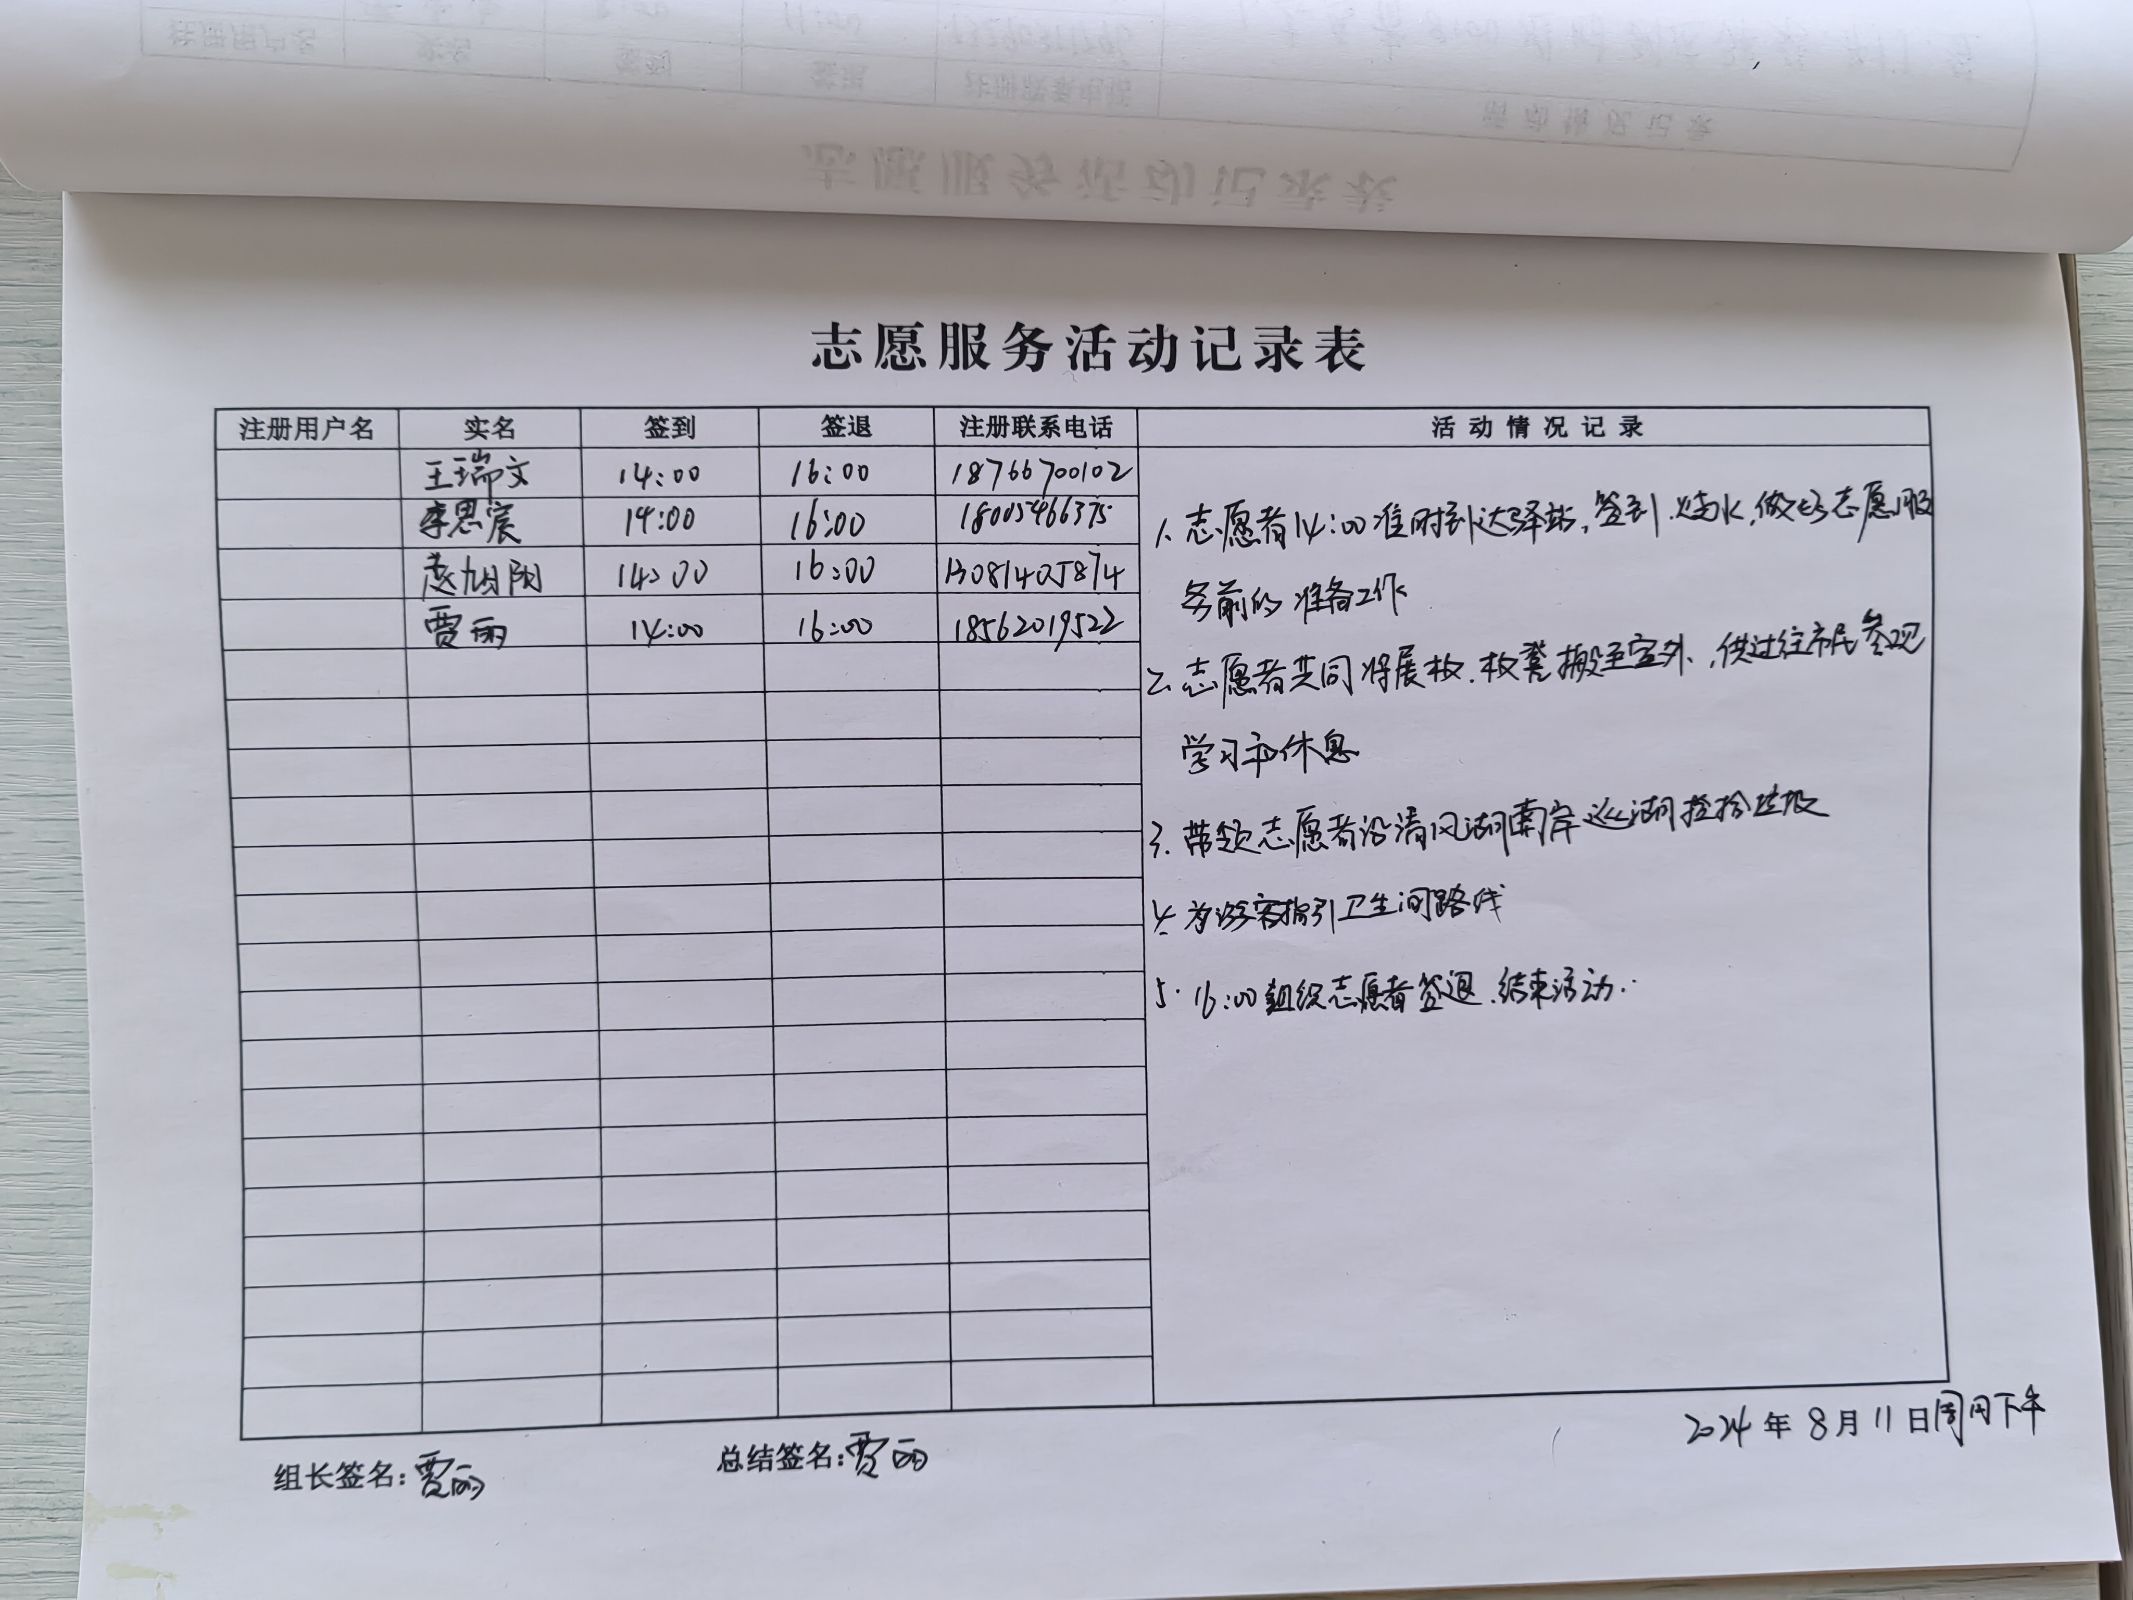 志愿服务活动记录表
注册用户名 实名 签到 签退 注册联系电话 活动情况记录
王瑞文 14:00 16:00 18766700102
李思宸 14:00 16:00 18005466375
赵旭阳 14:00 16:00 13081405874
贾丽 14:00 16:00 18562019522
1. 志愿者14:00准时到达驿站,签到.烧水,做好志愿服
务前的准备工作
2. 志愿者共同将展板.板凳搬至室外,供过往市民参观
学习和休息
3. 带领志愿者沿清风湖南岸巡湖捡拾垃圾
4. 为游客指引卫生间路线
5. 16:00组织志愿者签退.结束活动.
2024年8月11日周日下午
组长签名:贾丽 总结签名:贾丽